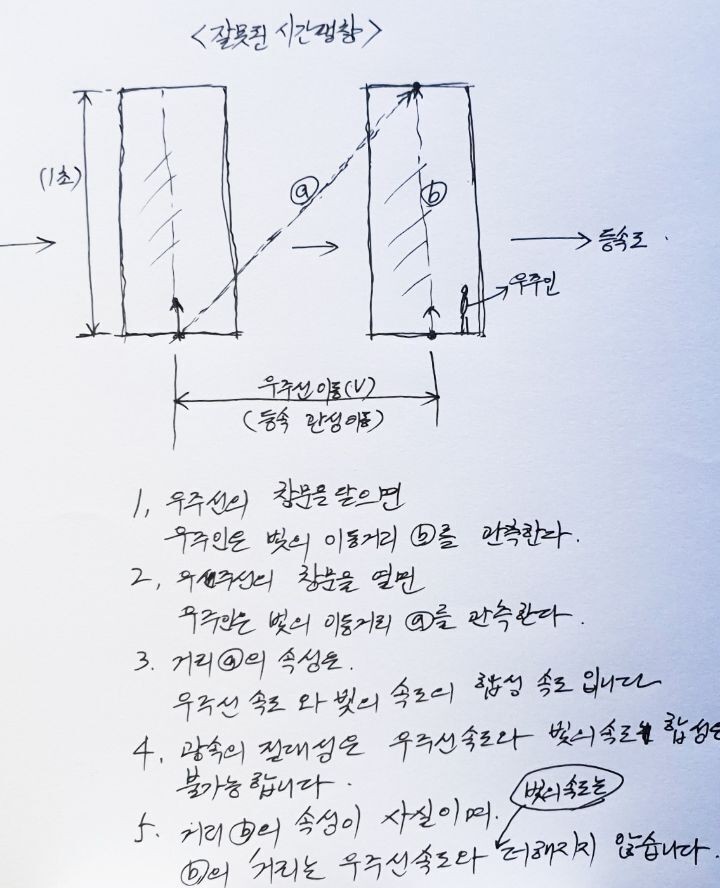 <잘못된 시간팽창>
(1초)
ⓐ
ⓑ
등속도.
우주인
우주선이동(V)
(등속 관성이동)
1, 우주선의 창문을 닫으면
우주인은 빛의 이동거리 ⓑ를 관측한다.
2, 우주선의 창문을 열면
우주인은 빛의 이동거리 ⓐ를 관측한다.
3. 거리ⓐ의 속성은.
우주선 속도 와 빛의 속도의 합성 속도 입니다
4, 광속의 절대성은 우주선속도와 빛의속도 합성은
불가능 합니다.
빛의속도는
5. 거리ⓑ의 속성이 사실이며.
ⓑ의 거리는 우주선속도와 더해지지 않습니다.